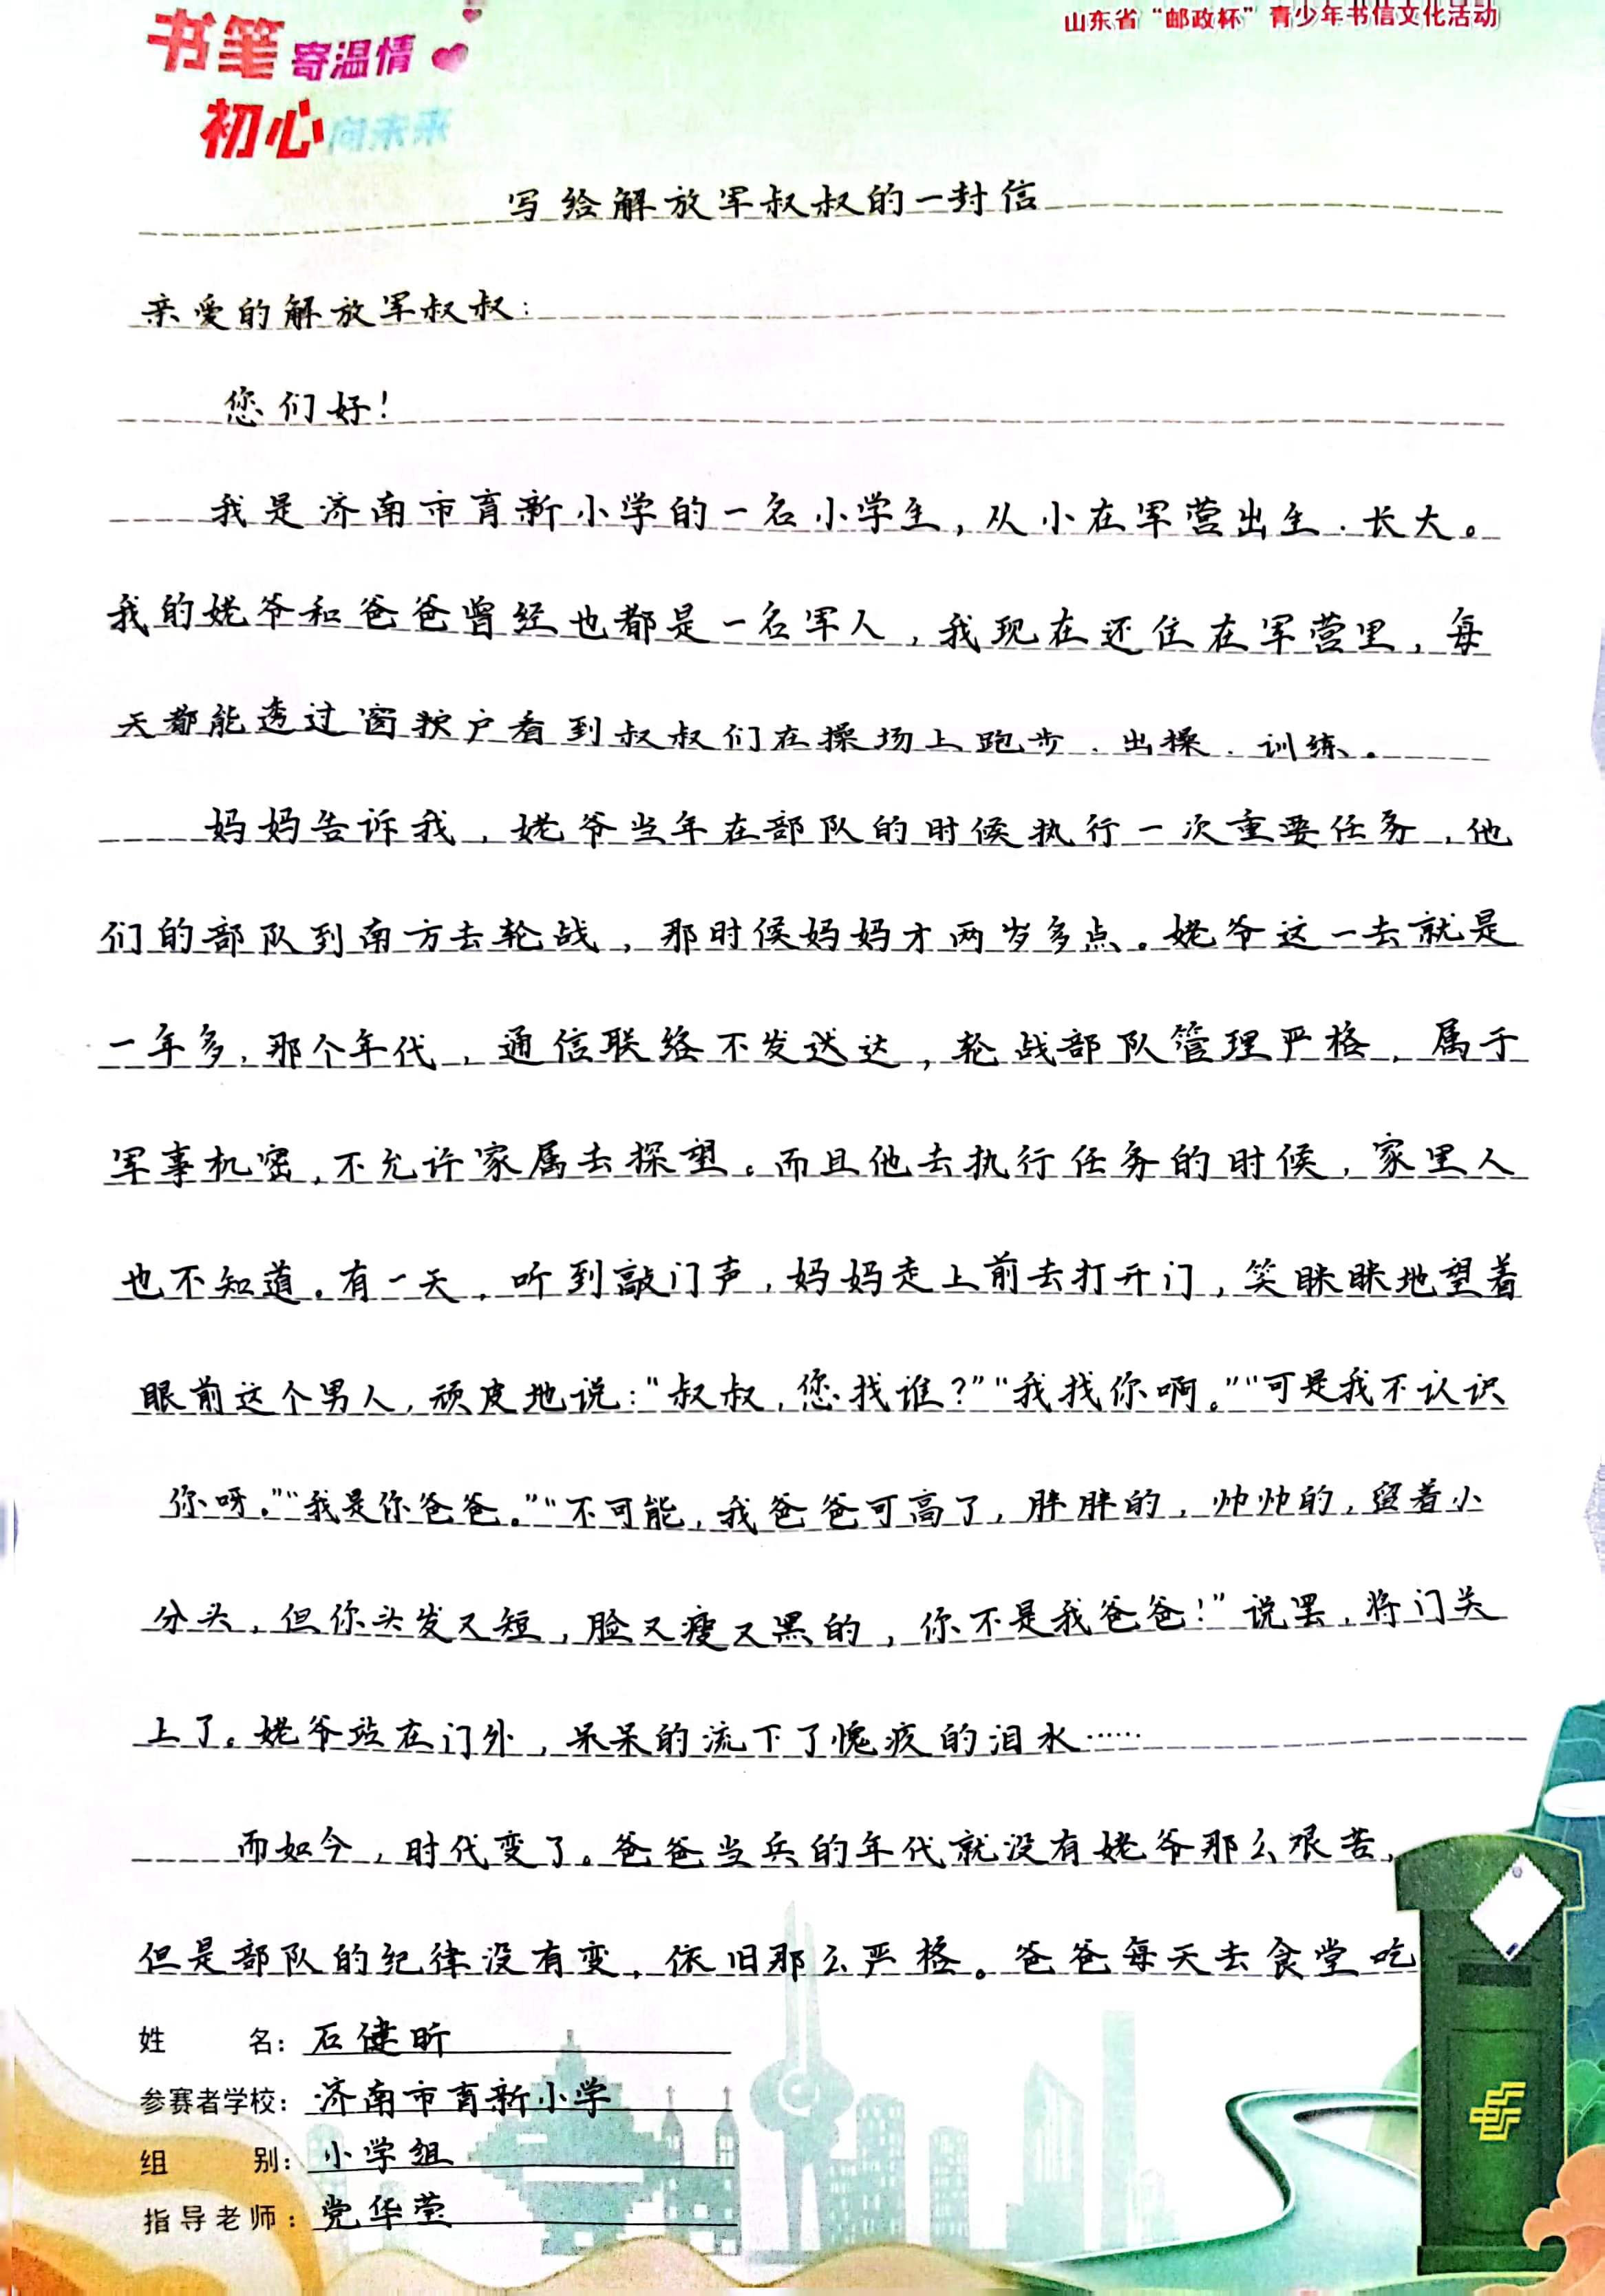 山东省“邮政杯”青少年书信文化活动
书笔寄温情
初心向未来
写给解放军叔叔的一封信
亲爱的解放军叔叔：
您们好！
我是济南市育新小学的一名小学生，从小在军营出生、长大。
我的姥爷和爸爸曾经也都是一名军人，我现在还住在军营里，每
天都能透过窗户看到叔叔们在操场上跑步、出操、训练。
妈妈告诉我，姥爷当年在部队的时候执行一次重要任务，他
们的部队到南方去轮战，那时候妈妈才两岁多点。姥爷这一去就是
一年多，那个年代，通信联络不发达，轮战部队管理严格，属于
军事机密，不允许家属去探望。而且他去执行任务的时候，家里人
也不知道。有一天，听到敲门声，妈妈走上前去打开门，笑眯眯地望着
眼前这个男人，顽皮地说：“叔叔，您找谁？”“我找你啊。”“可是我不认识
你呀。”“我是你爸爸。”“不可能，我爸爸可高了，胖胖的，帅帅的，留着小
分头，但你头发又短，脸又瘦又黑的，你不是我爸爸！”说罢，将门关
上了。姥爷站在门外，呆呆的流下了愧疚的泪水……
而如今，时代变了。爸爸当兵的年代就没有姥爷那么艰苦，
但是部队的纪律没有变，依旧那么严格。爸爸每天去食堂吃
姓名：石健昕
参赛者学校：济南市育新小学
组别：小学组
指导老师：党华莹